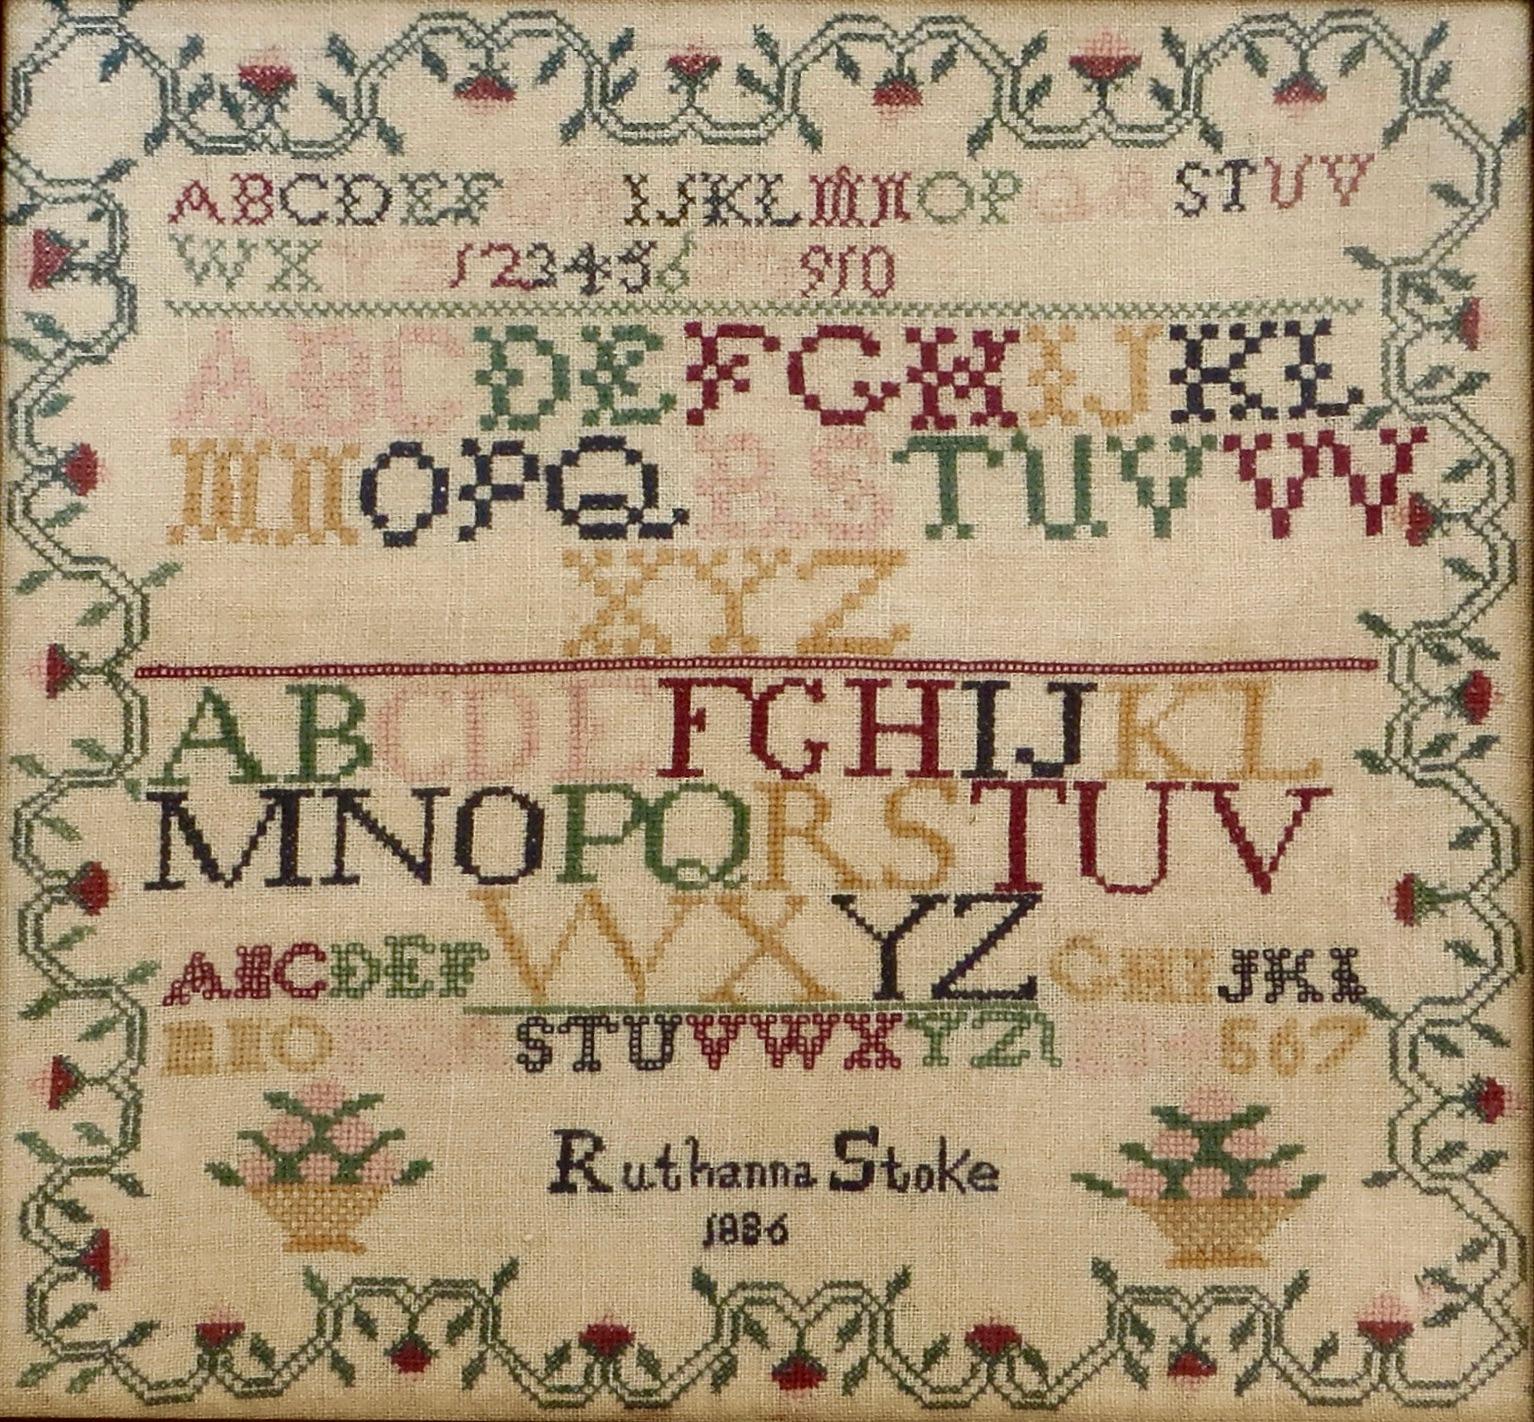 ABCDEFGHIJKLMNOPQRSTUV
WXYZ12345678910
ABCDEFGHIJKL
MNOPQRSTUVW
XYZ
ABCDEFGHIJKL
MNOPQRSTUV
WXYZ
ABCDEFGHIJKL
MNOPQRSTUVWXYZ1234567
Ruthanna Stoke
1886